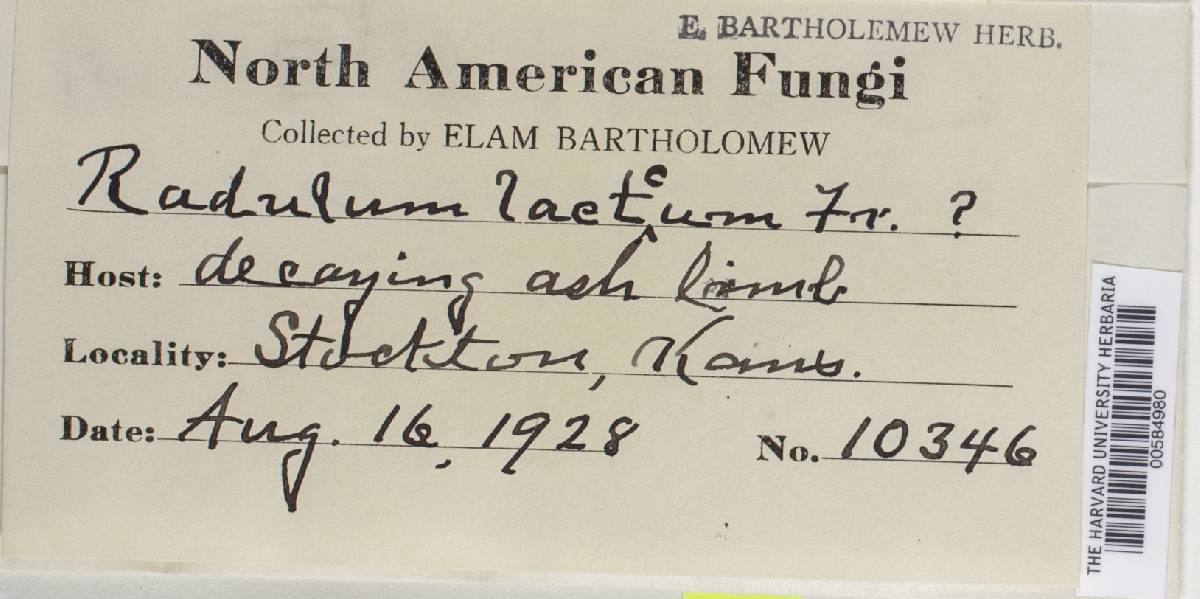 E. BARTHOLEMEW HERB.
North American Fungi
Collected by ELAM BARTHOLOMEW
Radulum lacteum Fr. ?
Host: decaying ash limb
Locality: Stockton, Kans.
Date: Aug. 16, 1928 No. 10346
THE HARVARD UNIVERSITY HERBARIA
00584980